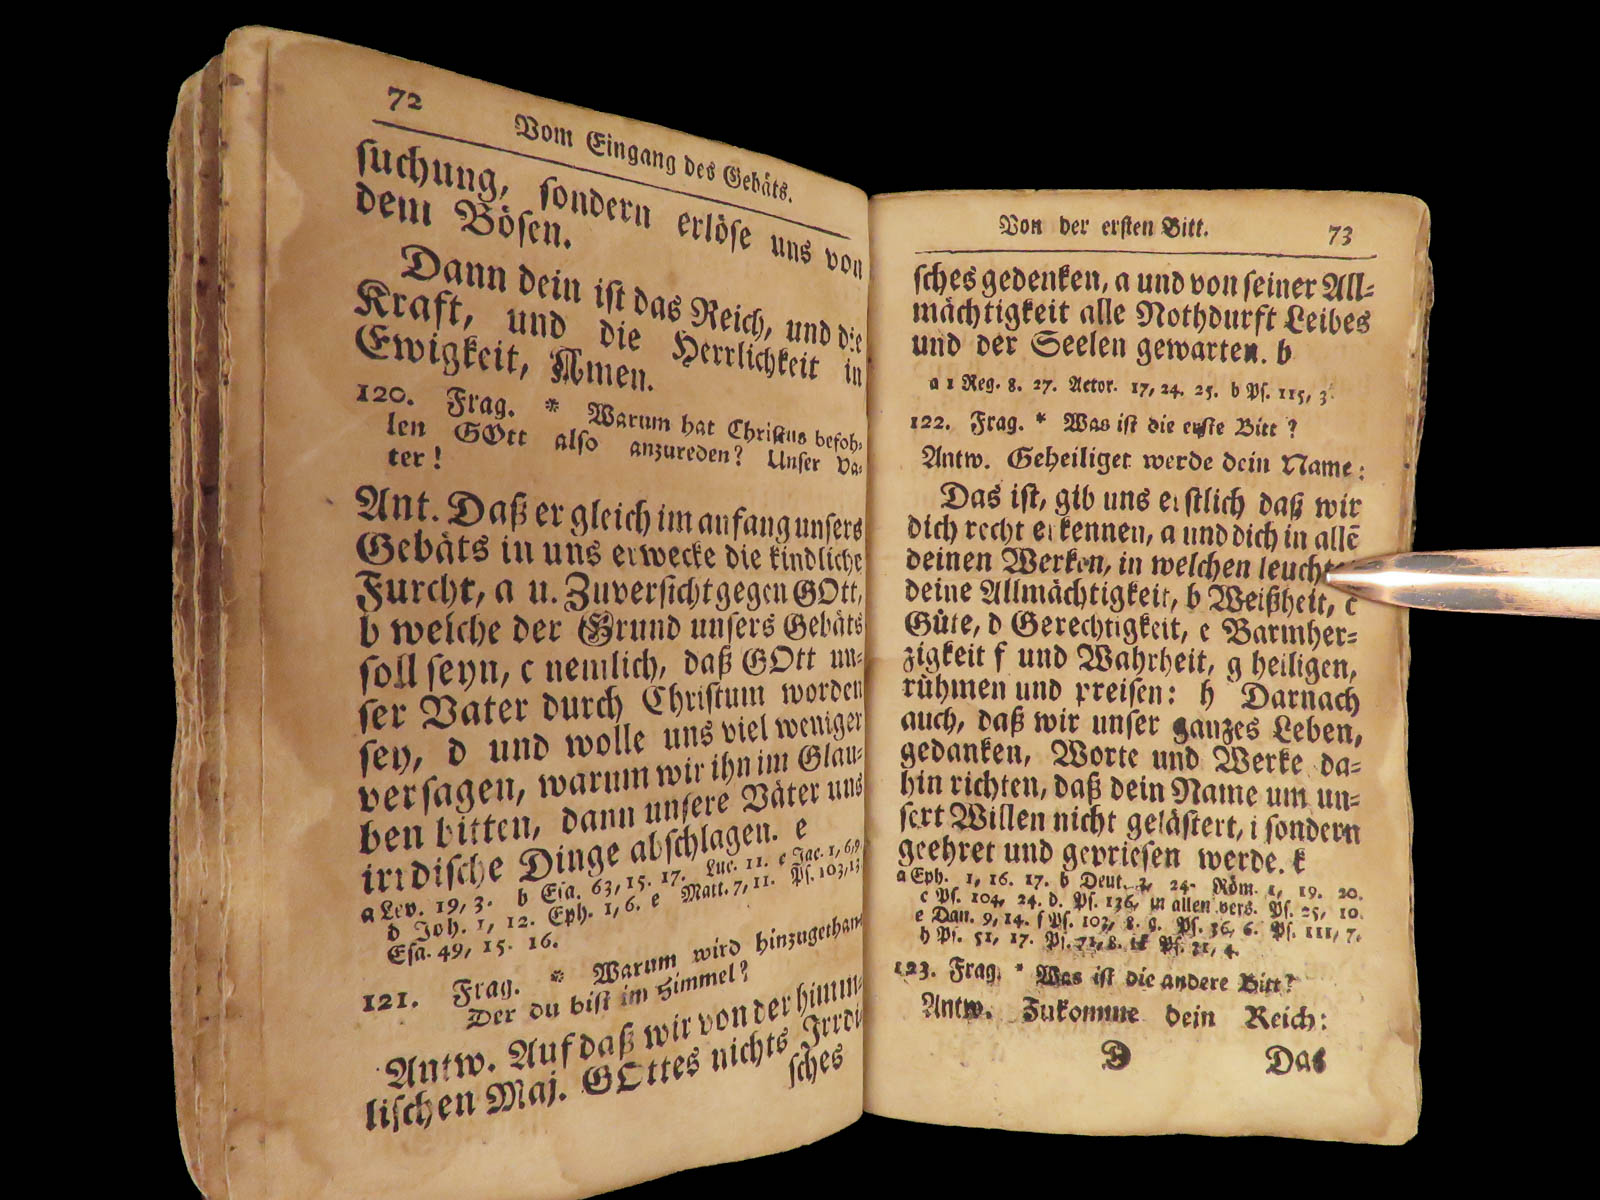 72
Vom Eingang des Gebäts.
suchung, sondern erlöse uns von
dem Bösen.
Dann dein ist das Reich, und die
Kraft, und die Herrlichkeit in
Ewigkeit, Amen.
120. Frag. * Warum hat Christus befoh-
len GOtt also anzureden? Unser Va-
ter!
Ant. Daß er gleich im anfang unsers
Gebäts in uns erwecke die kindliche
Furcht, a u. Zuversicht gegen GOtt,
b welche der Grund unsers Gebäts
soll seyn, c nemlich, daß GOtt un-
ser Vater durch Christum worden
sey, d und wolle uns viel weniger
versagen, warum wir ihn im Glau-
ben bitten, dann unsere Väter uns
irrdische Dinge abschlagen. e
a Lev. 19, 3. b Esa. 63, 15. 17. Luc. 11. c Jac. 1, 6,
d Joh. 1, 12. Eph. 1, 6. e Matt. 7, 11. Ps. 103, 13
Esa. 49, 15. 16.
121. Frag. * Warum wird hinzugethan
Der du bist im Himmel?
Antw. Auf daß wir von der himm-
lischen Maj. GOttes nichts Irrdi-
sches
Von der ersten Bitt. 73
sches gedenken, a und von seiner All-
mächtigkeit alle Nothdurft Leibes
und der Seelen gewarten. b
a 1 Reg. 8. 27. Actor. 17, 24. 25. b Ps. 115, 3.
122. Frag. * Was ist die erste Bitt?
Antw. Geheiliget werde dein Name:
Das ist, gib uns erstlich daß wir
dich recht erkennen, a und dich in allē
deinen Werken, in welchen leucht
deine Allmächtigkeit, b Weißheit, c
Güte, d Gerechtigkeit, e Barmher-
zigkeit f und Wahrheit, g heiligen,
rühmen und preisen: h Darnach
auch, daß wir unser ganzes Leben,
gedanken, Worte und Werke da-
hin richten, daß dein Name um un-
sert Willen nicht gelästert, i sondern
geehret und gepriesen werde. k
a Eph. 1, 16. 17. b Deut. 3, 24. Röm. 1, 19. 20.
c Ps. 104, 24. d. Ps. 136, in allen vers. Ps. 25, 10.
e Dan. 9, 14. f Ps. 103, 8. g. Ps. 36, 6. Ps. 111, 7.
h Ps. 51, 17. Ps. 71, 8. Ps. 21, 4.
123. Frag. * Was ist die andere Bitt?
Antw. Zukomme dein Reich:
D Das